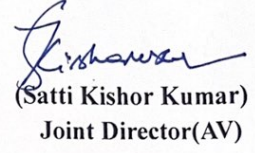 (Satti Kishor Kumar)
Joint Director(AV)